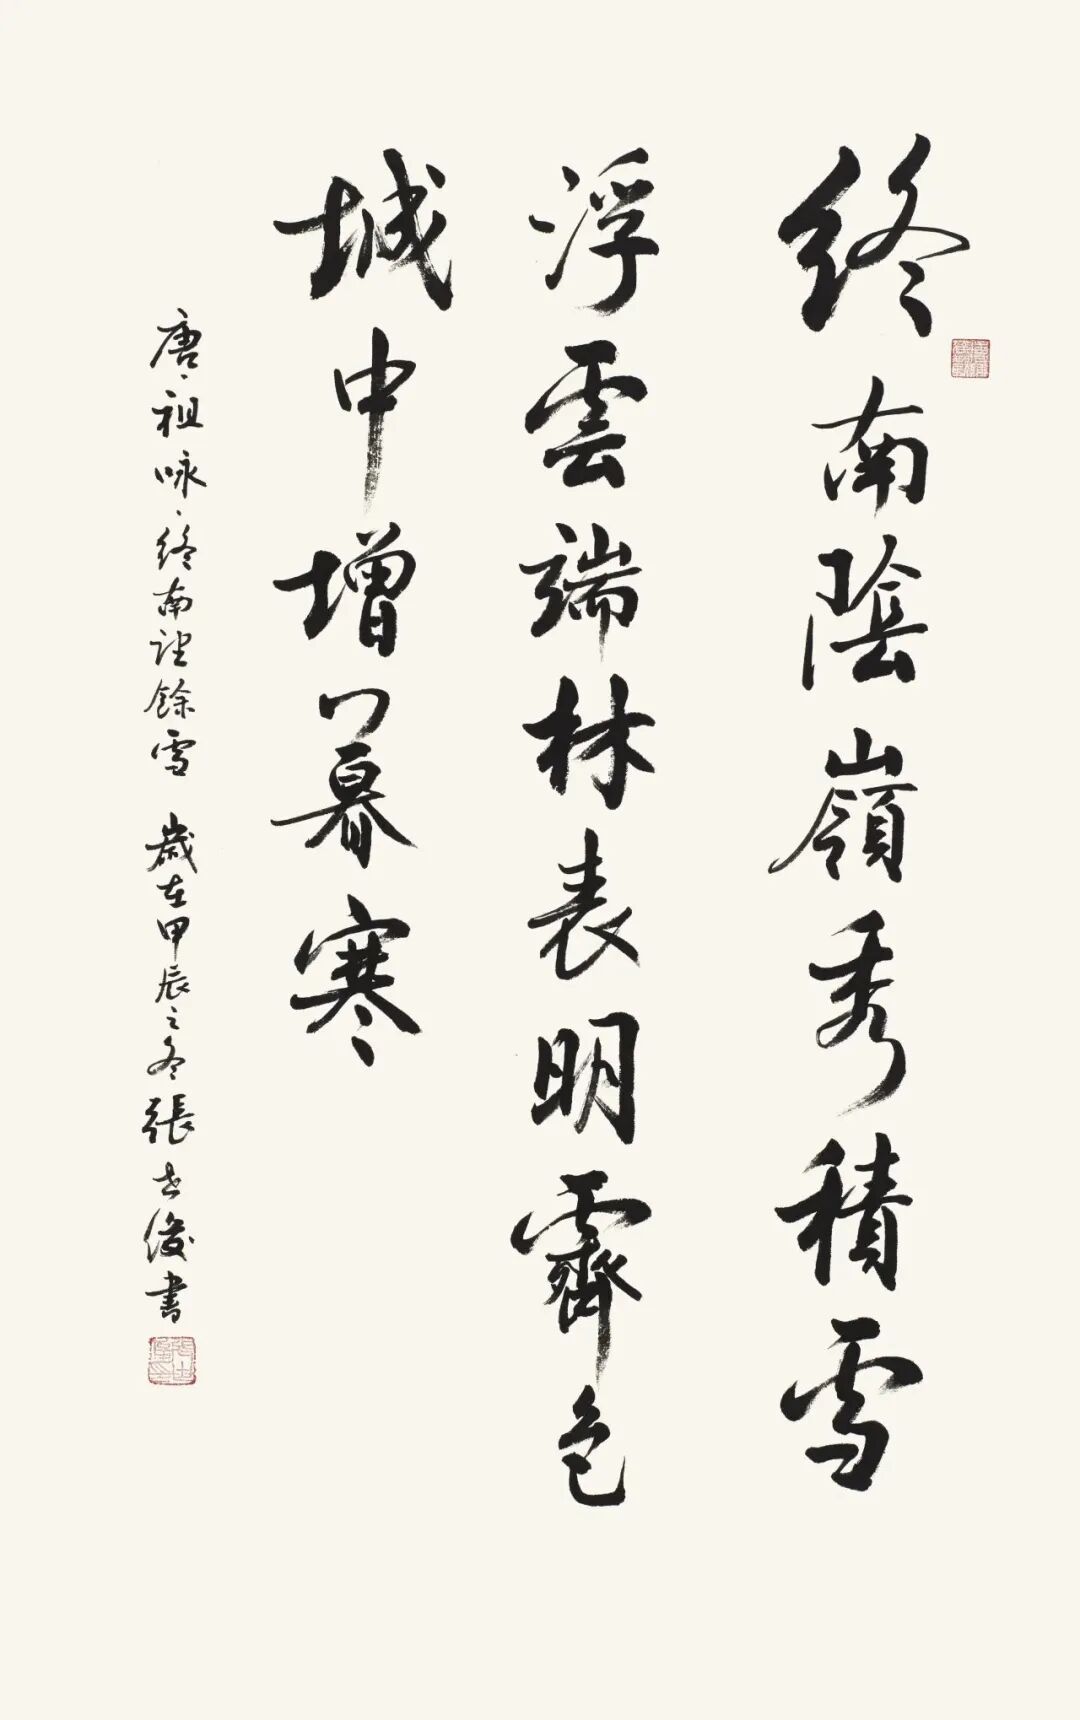 終南陰嶺秀積雪
浮雲端林表明霽色
城中增暮寒
唐祖咏終南望餘雪 歲在甲辰之冬張世俊書